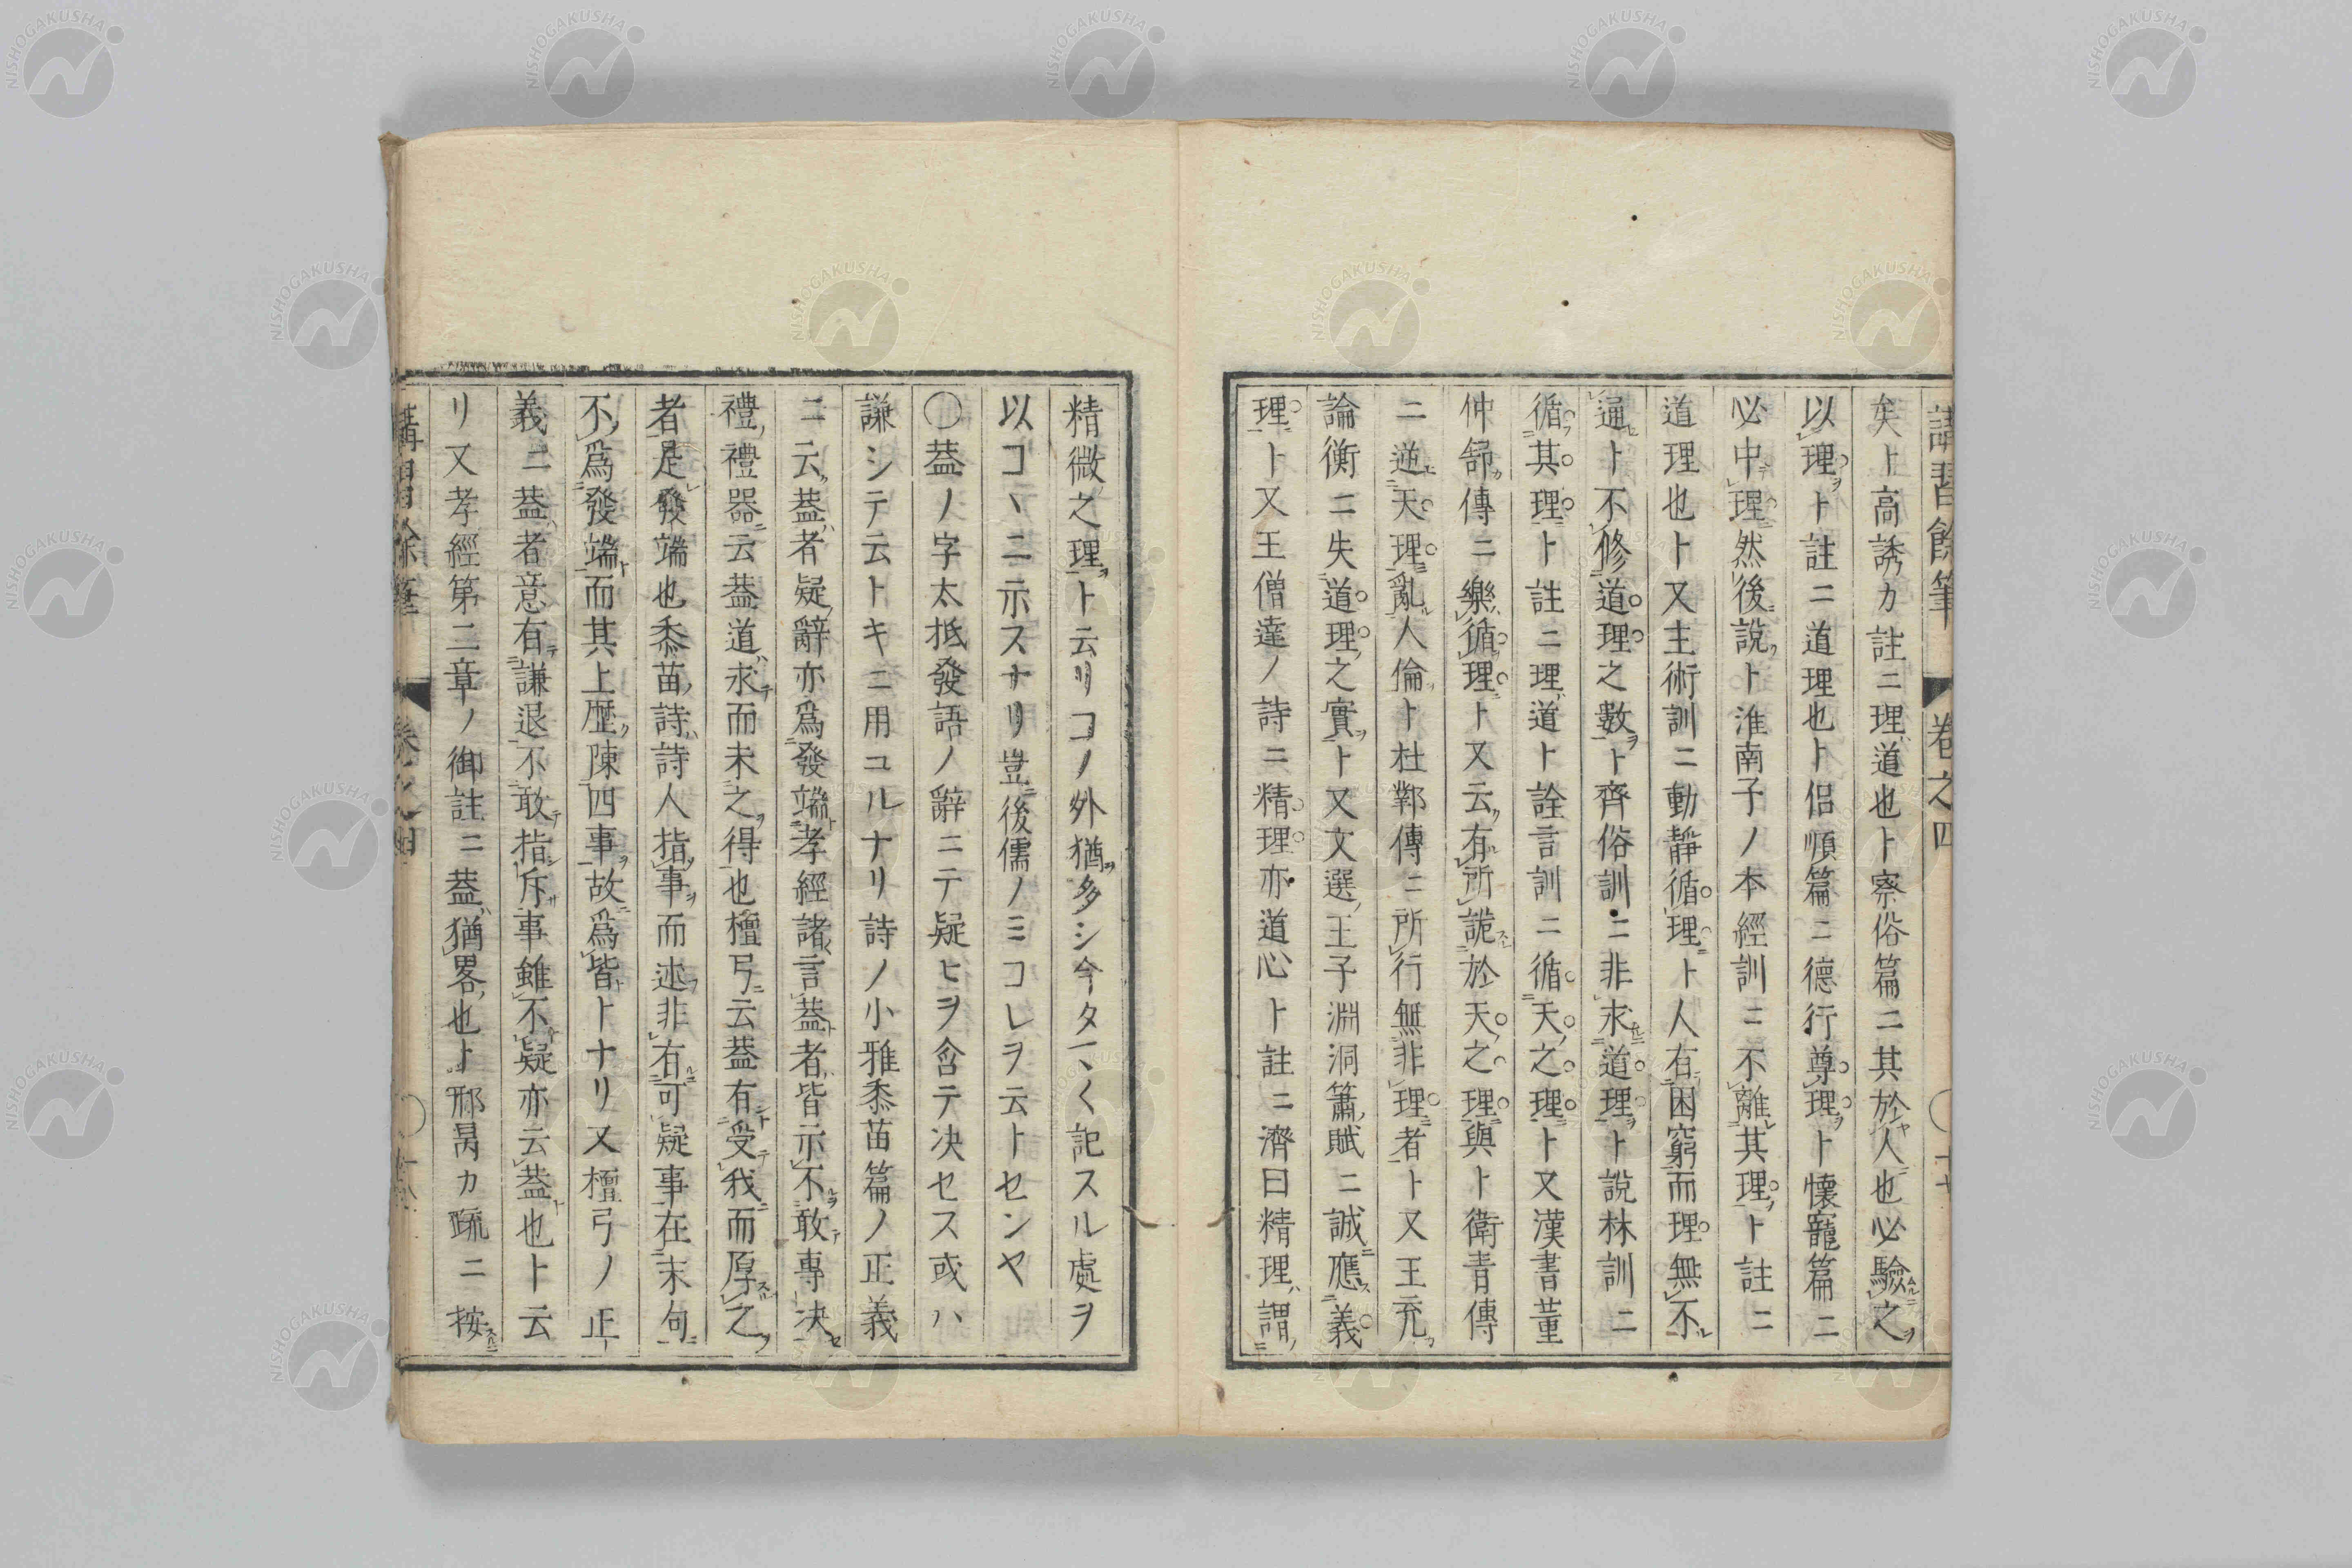 講習餘筆 卷之四
矣ト高誘カ註ニ理道也ト察俗篇ニ其於人也必驗之
以理ト註ニ道理也ト侶順篇ニ德行尊理ト懷寵篇ニ
必中理然後說ト淮南子ノ本經訓ニ不離其理ト註ニ
道理也ト又主術訓ニ動靜循理ト人有困窮而理無不
通ト不修道理之數ト齊俗訓ニ非求道理ト說林訓ニ
循其理ト註ニ理道ト詮言訓ニ循天之理ト又漢書董
仲舒傳ニ樂循理ト又云有所詭於天之理與ト衛青傳
ニ逆天理亂人倫ト杜鄴傳ニ所行無非理者ト又王充
論衡ニ失道理之實ト又文選王子淵洞簫賦ニ誠應義
理ト又王僧達ノ詩ニ精理亦道心ト註ニ濟曰精理謂
精微之理ト云リコノ外猶多シ今タヽ〱記スル處ヲ
以コヽニ示スナリ豈後儒ノミコレヲ云トセンヤ
〇葢ノ字太抵發語ノ辭ニテ疑ヒヲ含テ决セス或ハ
謙シテ云トキニ用ユルナリ詩ノ小雅黍苗篇ノ正義
ニ云葢者疑辭亦爲發端孝經諸言葢者皆示不敢專决
禮禮器云葢道求而未之得也檀弓云葢有受我而厚之
者是發端也黍苗詩詩人指事而述非有可疑事在末句
不爲發端而其上歷陳四事故爲皆トナリ又檀弓ノ正
義ニ葢者意有謙退不敢指斥事雖不疑亦云葢也ト云
リ又孝經第二章ノ御註ニ葢猶畧也ト邢昺カ疏ニ按
講習餘筆